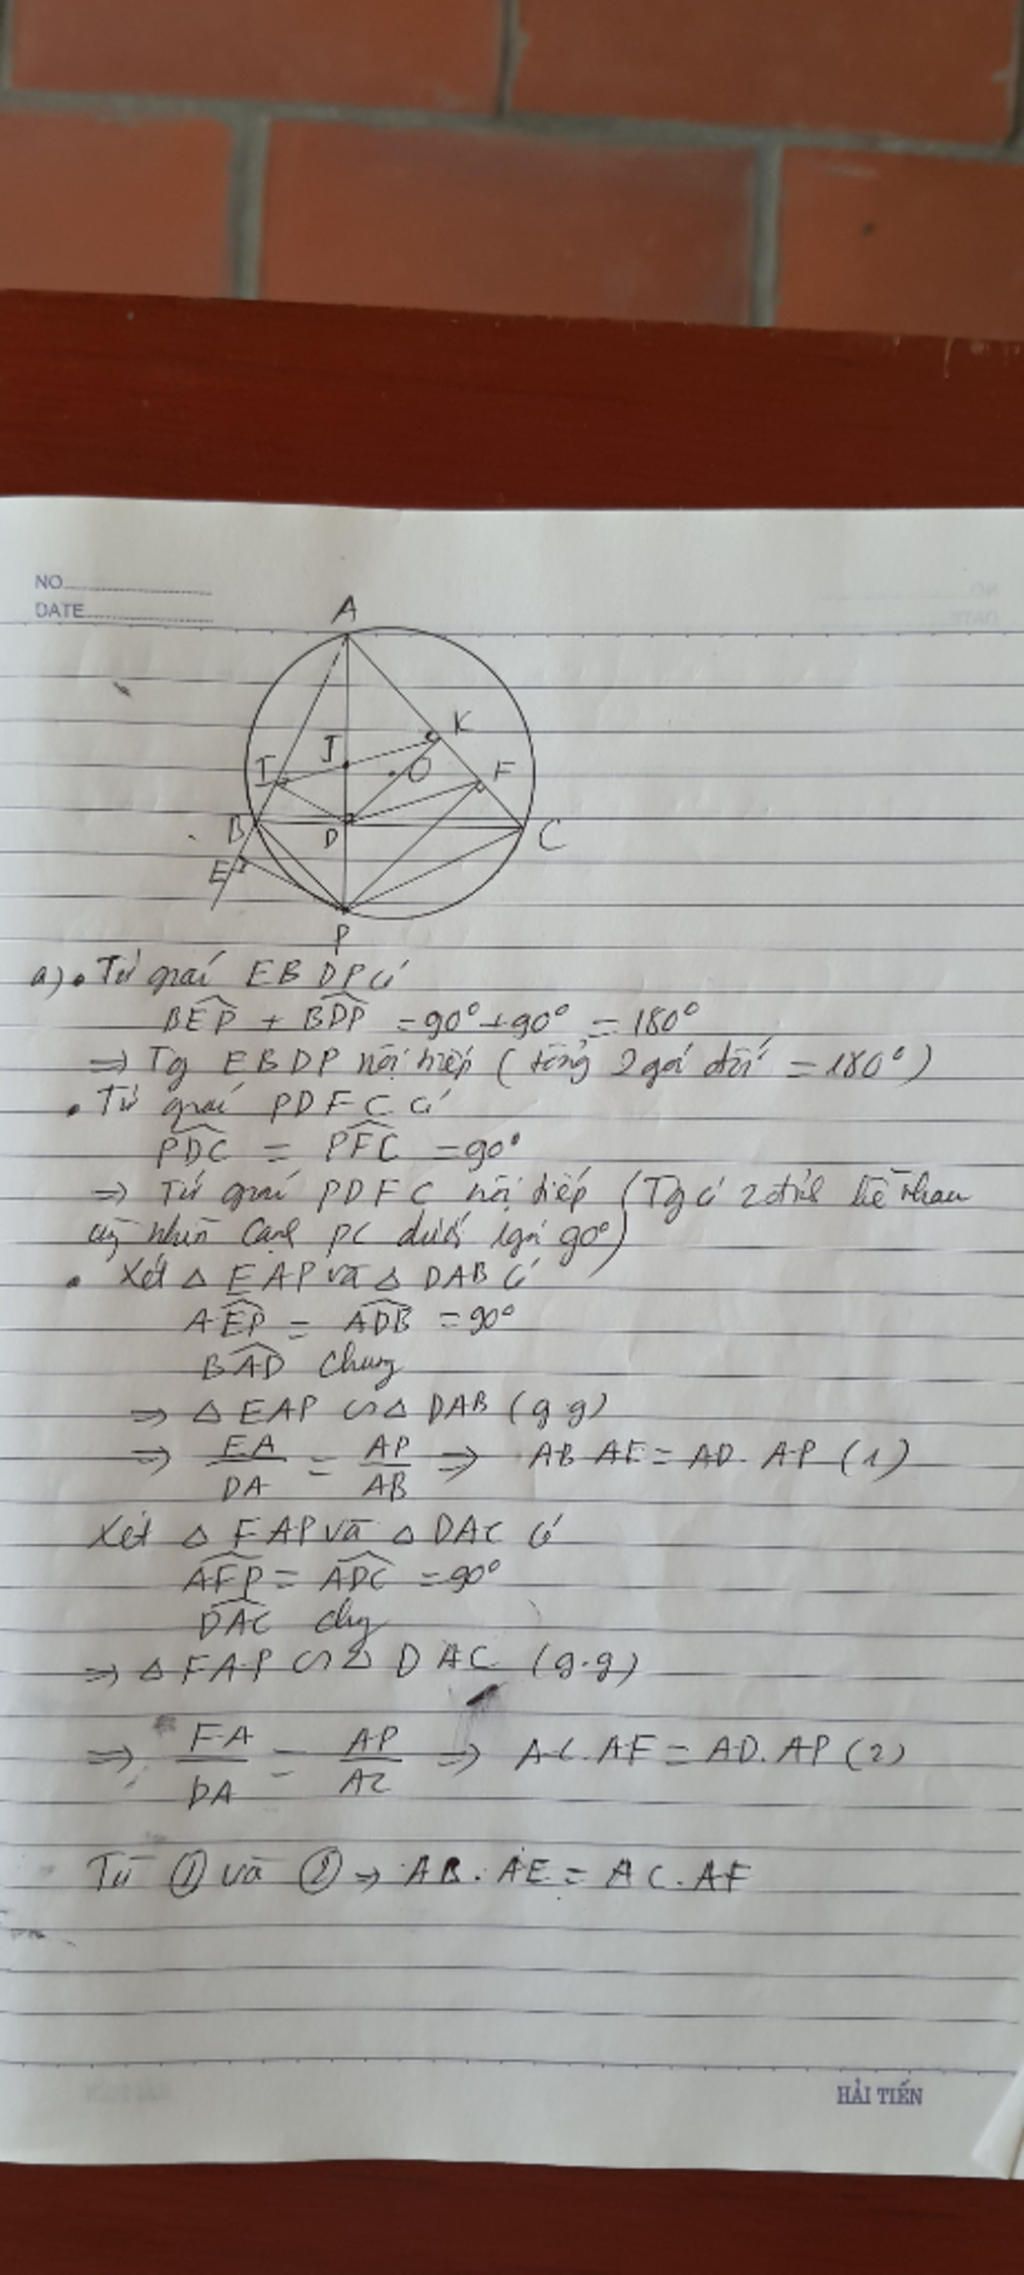 NO
DATE
A
K
J
I
O
F
B
D
C
E
P
a) • Tứ giác EBDP có
BEP + BDP = 90° + 90° = 180°
=> Tg EBDP nội tiếp (tổng 2 góc đối = 180°)
• Tứ giác PDFC có
PDC = PFC = 90°
=> Tứ giác PDFC nội tiếp (Tg có 2 đỉnh kề nhau
cùng nhìn cạnh PC dưới 1 góc 90°)
• Xét △ EAP và △ DAB có
AEP = ADB = 90°
BAD chung
=> △ EAP ∽ △ DAB (g.g)
=> EA/DA = AP/AB => AB.AE = AD.AP (1)
Xét △ FAP và △ DAC có
AFP = ADC = 90°
DAC chg
=> △ FAP ∽ △ DAC (g.g)
=> FA/DA = AP/AC => AC.AF = AD.AP (2)
Từ ① và ② => AB.AE = AC.AF
HẢI TIẾN